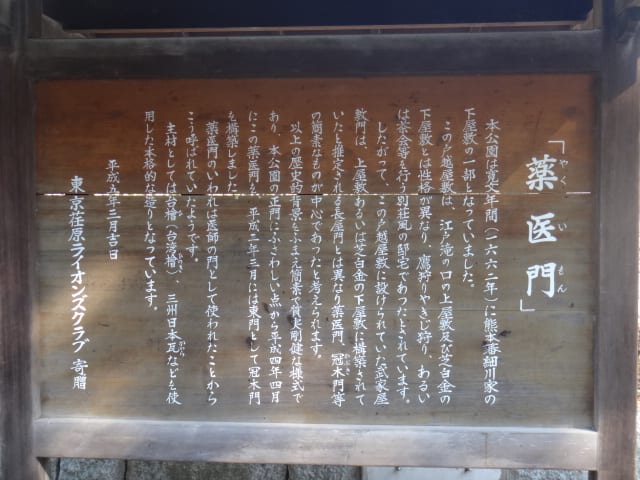 「薬医門」
やく い もん
本公園は寛文年間（一六六二年）に熊本藩細川家の
下屋敷の一部となっていました。
この戸越屋敷は、江戸滝の口の上屋敷及び芝白金の
下屋敷とは性格が異なり、鷹狩りやきじ狩り、あるい
は茶会等を行う別荘風の邸宅であつたとされています。
したがって、この戸越屋敷に設けられていた武家屋
敷門は、上屋敷あるいは芝白金の下屋敷に構築されて
いたと推定される長屋門とは異なり薬医門、冠木門等
の簡素なものが中心であったと考えられます。
以上の歴史的背景をふまえ簡素で質実剛健な様式で
あり、本公園の正門にふさわしい点から平成四年四月
にこの薬医門を、平成二年三月には東門として冠木門
を構築しました。
薬医門のいわれは医師の門として使われたことから
こう呼ばれていたようです。
主材としては台檜（台湾檜）、三州日本瓦などを使
用した本格的な造りとなっています。
平成五年三月吉日
東京荏原ライオンズクラブ 寄贈